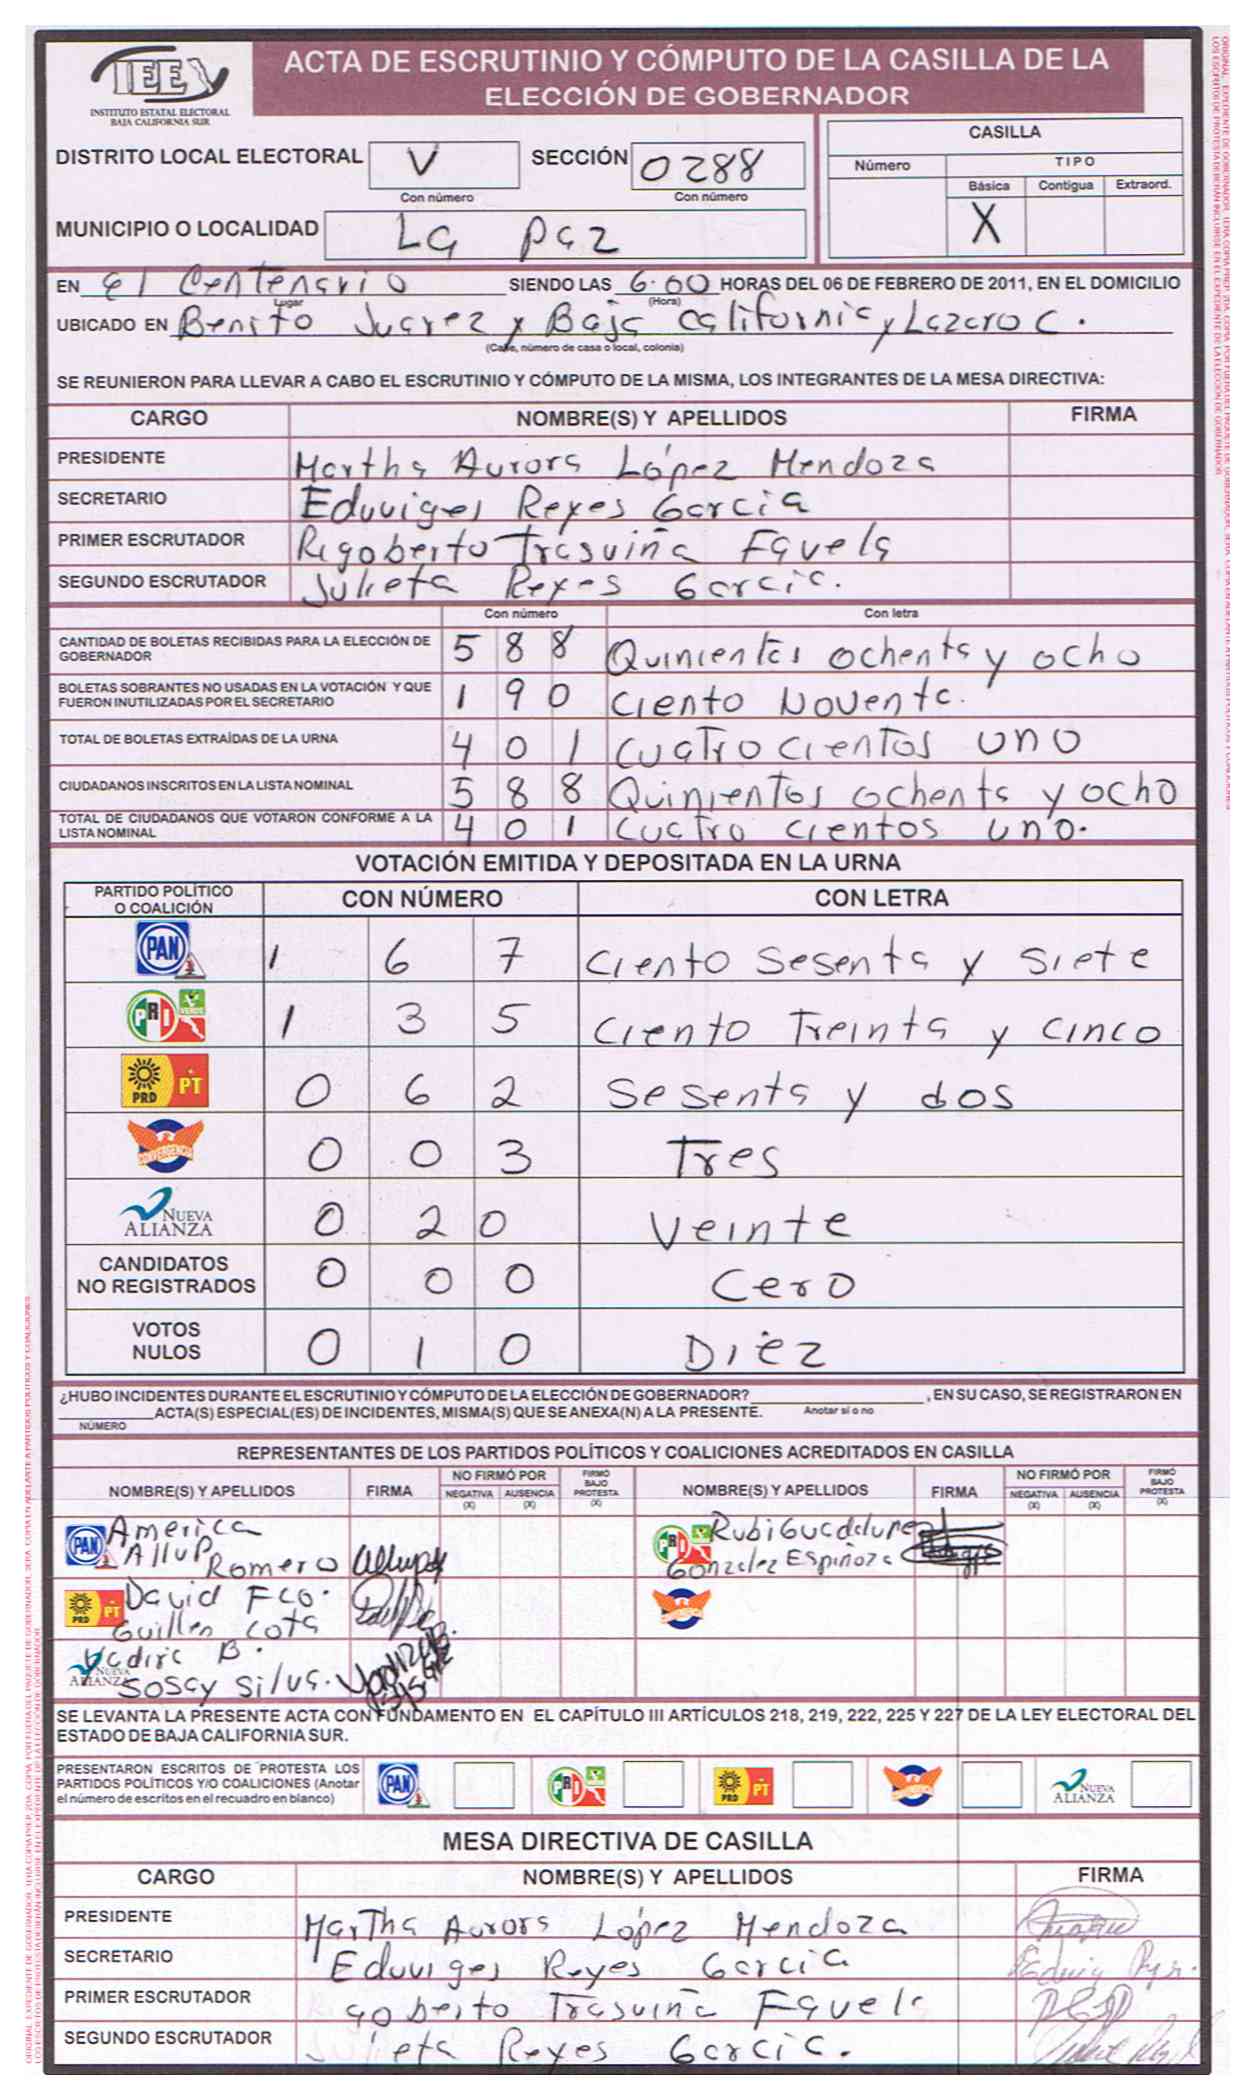 IEE
INSTITUTO ESTATAL ELECTORAL
BAJA CALIFORNIA SUR
ACTA DE ESCRUTINIO Y CÓMPUTO DE LA CASILLA DE LA
ELECCIÓN DE GOBERNADOR
DISTRITO LOCAL ELECTORAL V SECCIÓN 0288
Con número Con número
MUNICIPIO O LOCALIDAD La paz
CASILLA
Número TIPO
Básica Contigua Extraord.
X
EN el Centenario SIENDO LAS 6:00 HORAS DEL 06 DE FEBRERO DE 2011, EN EL DOMICILIO
Lugar (Hora)
UBICADO EN Benito Juarez y Baja California y Lazaro C.
(Calle, número de casa o local, colonia)
SE REUNIERON PARA LLEVAR A CABO EL ESCRUTINIO Y CÓMPUTO DE LA MISMA, LOS INTEGRANTES DE LA MESA DIRECTIVA:
CARGO NOMBRE(S) Y APELLIDOS FIRMA
PRESIDENTE Martha Aurora López Mendoza
SECRETARIO Eduviges Reyes Garcia
PRIMER ESCRUTADOR Rigoberto Trasviña Favela
SEGUNDO ESCRUTADOR Julieta Reyes Garcia.
Con número Con letra
CANTIDAD DE BOLETAS RECIBIDAS PARA LA ELECCIÓN DE
GOBERNADOR 5 8 8 Quinientos ochenta y ocho
BOLETAS SOBRANTES NO USADAS EN LA VOTACIÓN Y QUE
FUERON INUTILIZADAS POR EL SECRETARIO 1 9 0 Ciento Noventa.
TOTAL DE BOLETAS EXTRAÍDAS DE LA URNA 4 0 1 Cuatro cientos uno
CIUDADANOS INSCRITOS EN LA LISTA NOMINAL 5 8 8 Quinientos ochenta y ocho
TOTAL DE CIUDADANOS QUE VOTARON CONFORME A LA
LISTA NOMINAL 4 0 1 Cuatro cientos uno.
VOTACIÓN EMITIDA Y DEPOSITADA EN LA URNA
PARTIDO POLÍTICO
O COALICIÓN CON NÚMERO CON LETRA
PAN 1 6 7 Ciento Sesenta y Siete
PRI VERDE 1 3 5 Ciento Treinta y cinco
PRD PT 0 6 2 Sesenta y dos
CONVERGENCIA 0 0 3 Tres
NUEVA ALIANZA 0 2 0 Veinte
CANDIDATOS
NO REGISTRADOS 0 0 0 Cero
VOTOS
NULOS 0 1 0 Diez
¿HUBO INCIDENTES DURANTE EL ESCRUTINIO Y CÓMPUTO DE LA ELECCIÓN DE GOBERNADOR? , EN SU CASO, SE REGISTRARON EN
ACTA(S) ESPECIAL(ES) DE INCIDENTES, MISMA(S) QUE SE ANEXA(N) A LA PRESENTE. Anotar sí o no
NÚMERO
REPRESENTANTES DE LOS PARTIDOS POLÍTICOS Y COALICIONES ACREDITADOS EN CASILLA
NOMBRE(S) Y APELLIDOS FIRMA NO FIRMÓ POR NEGATIVA (X) AUSENCIA (X) FIRMÓ BAJO PROTESTA (X) NOMBRE(S) Y APELLIDOS FIRMA NO FIRMÓ POR NEGATIVA (X) AUSENCIA (X) FIRMÓ BAJO PROTESTA (X)
PAN America PRI Rubi Guadalupe
Allup Romero Gonzalez Espinoza
PRD PT David Fco.
Guillen Cota
NUEVA ALIANZA Yadira B.
Sosa y Silva.
SE LEVANTA LA PRESENTE ACTA CON FUNDAMENTO EN EL CAPÍTULO III ARTÍCULOS 218, 219, 222, 225 Y 227 DE LA LEY ELECTORAL DEL
ESTADO DE BAJA CALIFORNIA SUR.
PRESENTARON ESCRITOS DE PROTESTA LOS
PARTIDOS POLÍTICOS Y/O COALICIONES (Anotar
el número de escritos en el recuadro en blanco) PAN PRI PRD PT NUEVA ALIANZA
MESA DIRECTIVA DE CASILLA
CARGO NOMBRE(S) Y APELLIDOS FIRMA
PRESIDENTE Martha Aurora López Mendoza
SECRETARIO Eduviges Reyes Garcia
PRIMER ESCRUTADOR Rigoberto Trasviña Favela
SEGUNDO ESCRUTADOR Julieta Reyes Garcia.